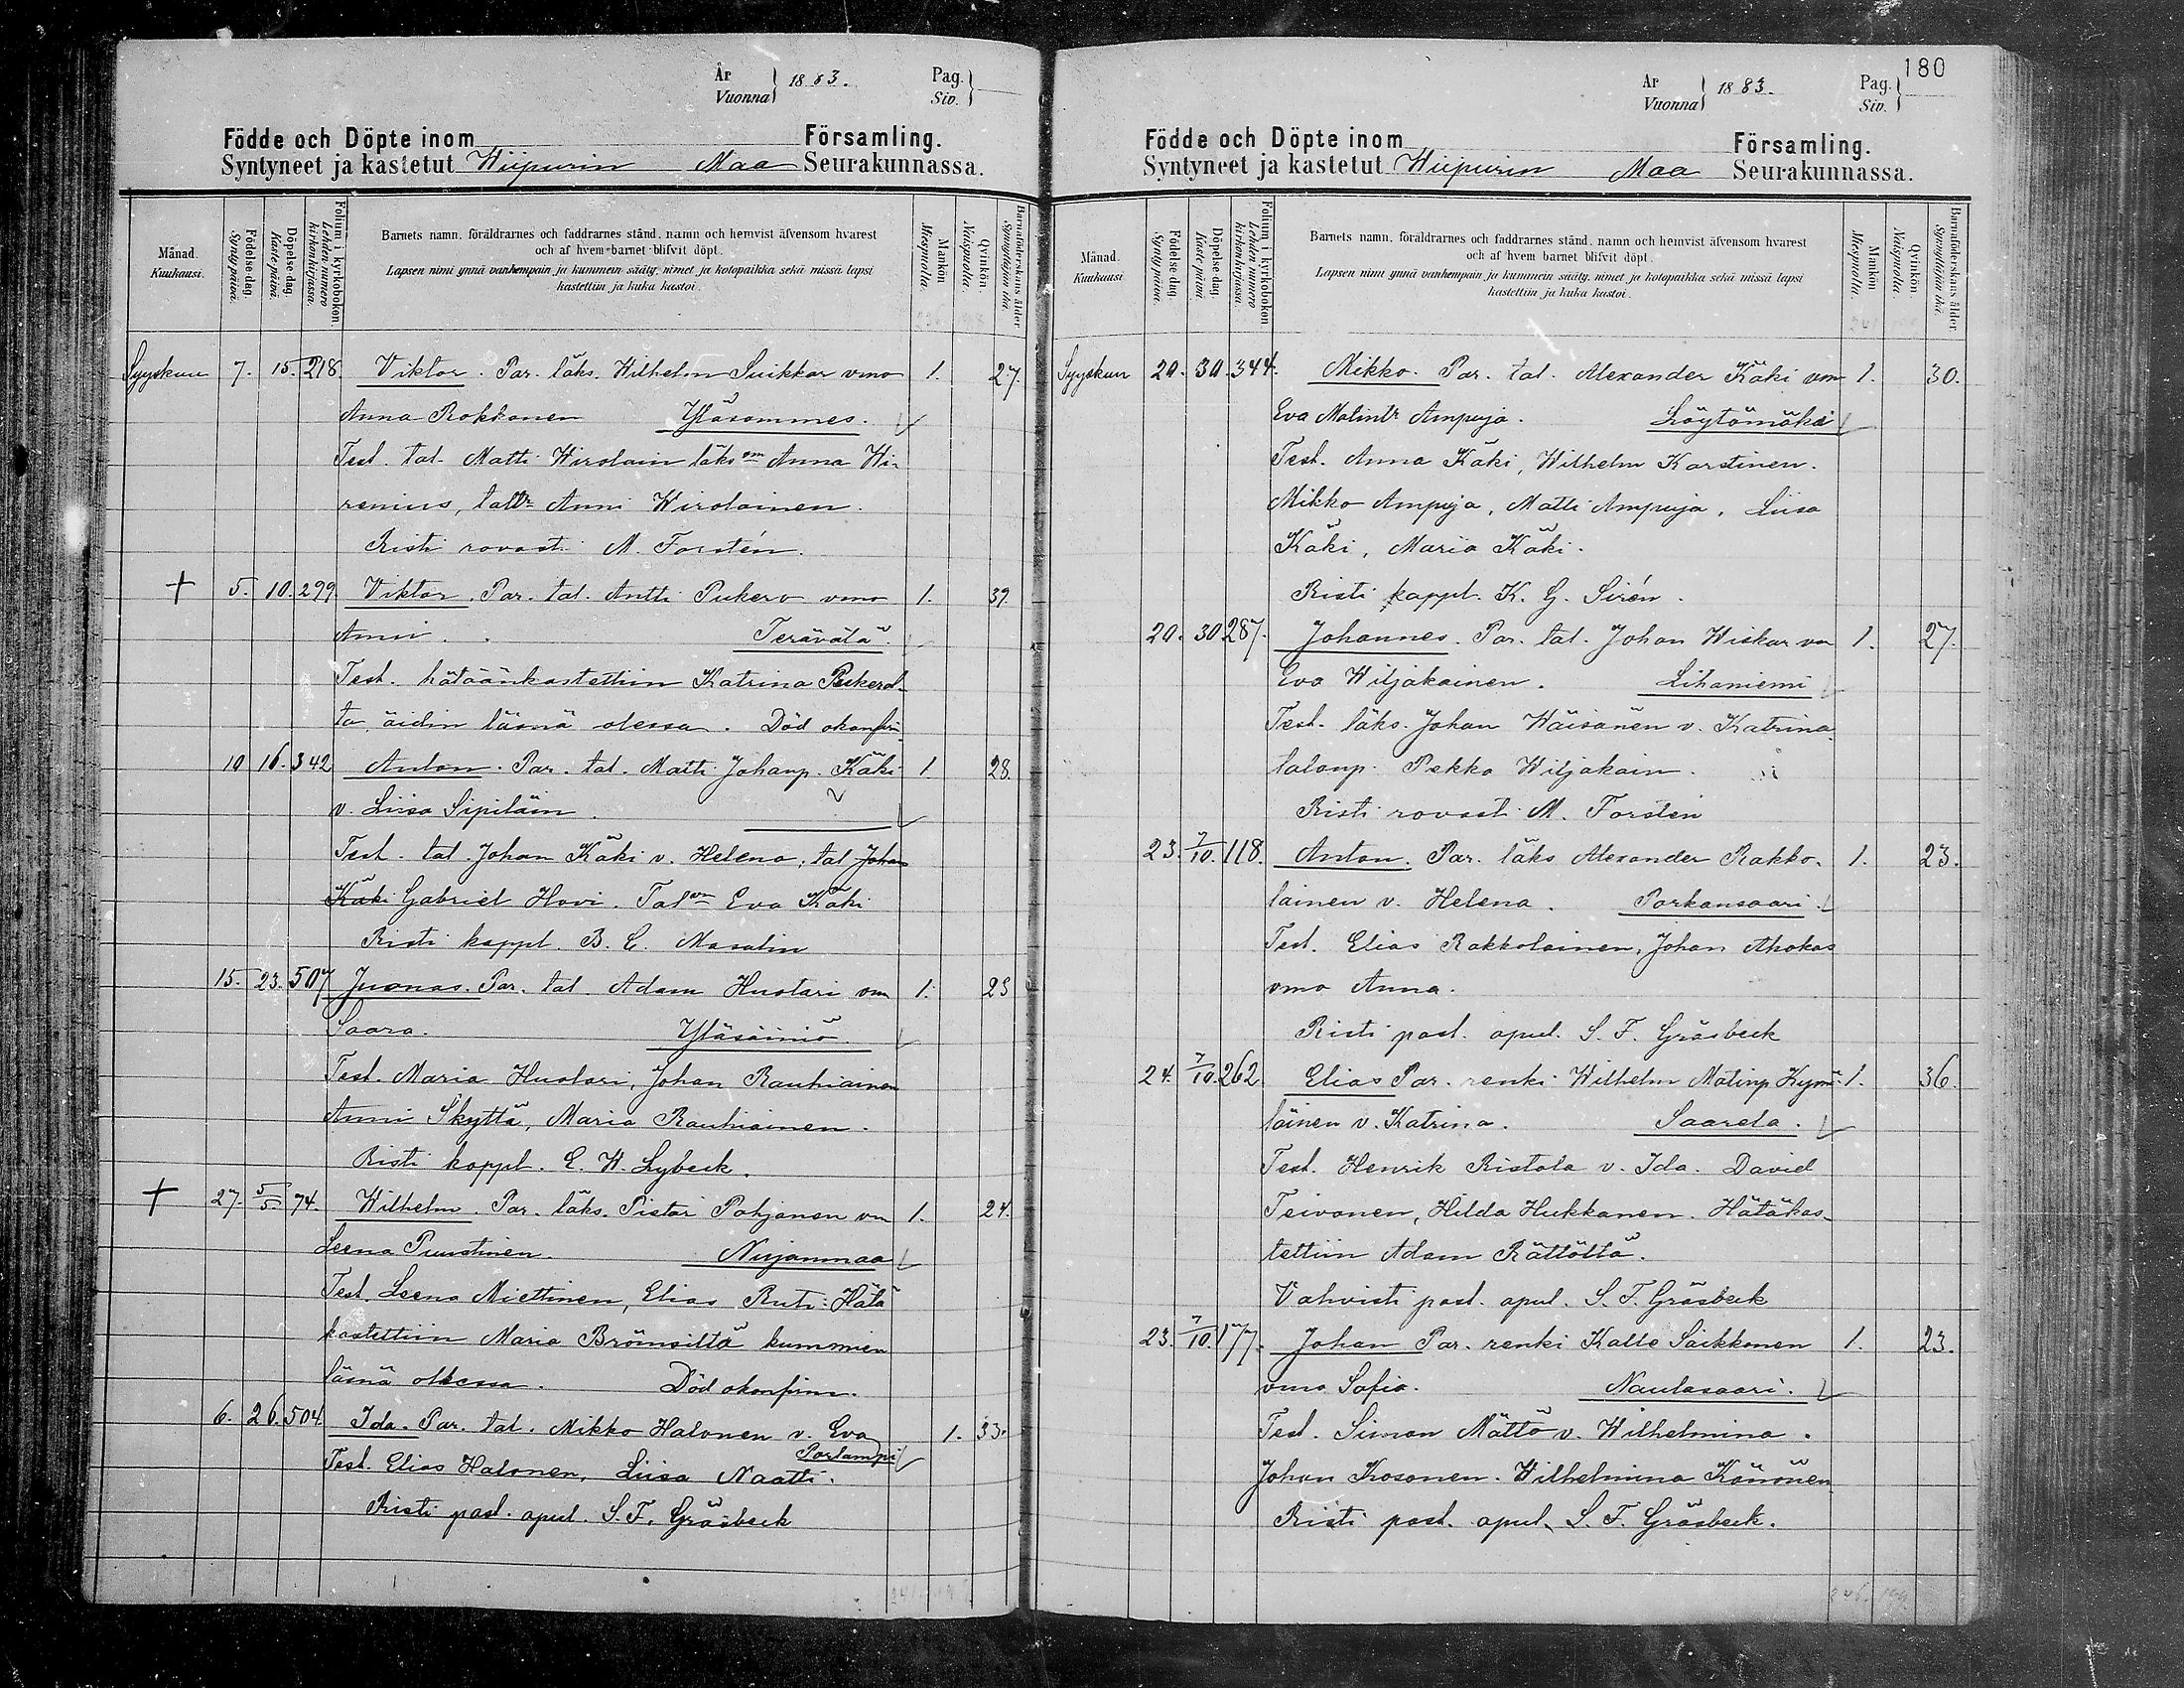 År Vuonna } 1883. Pag. Siv. }
Födde och Döpte inom Församling.
Syntyneet ja kastetut Wiipurin Maa Seurakunnassa.
Månad. Kuukausi.
Födelse-dag. Synty-päivä.
Döpelse-dag. Kaste-päivä.
Folium i kyrkoboken. Lehden numero kirkonkirjassa.
Barnets namn, föräldrarnes och faddrarnes stånd, namn och hemvist äfvensom hvarest
och af hvem barnet blifvit döpt.
Lapsen nimi ynnä vanhempain ja kummein sääty, nimet ja kotopaikka sekä missä lapsi
kastettiin ja kuka kastoi.
Mankön Miespuolia.
Qvinkön. Naispuolia.
Barnaföderskans ålder Synnyttäjän ikä.
Syyskuu 7. 15. 218. Viktor. Par. läks. Wilhelm Suikkar vmo 1. 27.
Anna Rokkanen Yläsommes.
Test. tal. Matti Wirolain läks vm Anna Wi-
renius, taltr Anni Wirolainen.
Risti rovasti M. Forstén.
+ 5. 10. 299. Viktor. Par. tal. Antti Pukero vmo 1. 39
Anni. Terävälä.
Test. hätäänkastettiin Katrina Peskerol-
ta, äidin läsnä olessa. Död okonfir.
10 16. 342 Anton. Par. tal. Matti Johanp. Käki 1. 28.
v. Liisa Sipiläin.
Test. tal. Johan Käki v. Helena, tal Johan
Käki Gabriel Hovi. Talvm Eva Käki
Risti kappl. B. E. Masalin
15. 23. 507 Juonas. Par. tal. Adam Huotari vm 1. 23
Saara. Yläsäiniö.
Test. Maria Huotari, Johan Rauhiainen
Anni Skyttä, Maria Rauhiainen.
Risti kappl. E. W. Lybeck.
+ 27. 5/5 74. Wilhelm. Par. läks. Pistar Pohjanen vm 1. 24.
Leena Puustinen. Nurjanmaa
Test. Leena Miettinen, Elias Ruti: Hätä
kastettiin Maria Brömsiltä kummien
läsnä ollessa. Död okonfirm.
6. 26. 504. Ida. Par. tal. Mikko Halonen v. Eva 1. 33.
Porlampi
Test. Elias Halonen, Liisa Naatti.
Risti past. apul. S. F. Gräsbeck
180
År Vuonna } 1883. Pag. Siv. }
Födde och Döpte inom Församling.
Syntyneet ja kastetut Wiipurin Maa Seurakunnassa.
Månad. Kuukausi
Födelse-dag. Synty-päivä.
Döpelse-dag. Kaste-päivä.
Folium i kyrkoboken Lehden numero kirkonkirjassa.
Barnets namn, föräldrarnes och faddrarnes stånd, namn och hemvist äfvensom hvarest
och af hvem barnet blifvit döpt.
Lapsen nimi ynnä vanhempain ja kummein sääty, nimet ja kotopaikka sekä missä lapsi
kastettiin ja kuka kastoi.
Mankön Miespuolia.
Qvinkön. Naispuolia.
Barnaföderskans ålder Synnyttäjän ikä.
Syyskuu 20. 30. 344. Mikko. Par. tal. Alexander Käki vm 1. 30.
Eva Matintr Ampuja. Löytömäki
Test. Anna Käki, Wilhelm Karstinen.
Mikko Ampuja, Matti Ampuja, Liisa
Käki, Maria Käki.
Risti kappl. K. G. Sirén.
20. 30 287. Johannes. Par. tal. Johan Wiskar vm 1. 27.
Eva Wiljakainen. Lihaniemi
Test. läks. Johan Wäisänen v. Katrina
talonp. Pekka Wiljakain.
Risti rovasti M. Forstén
23. 7/10. 118. Anton. Par. läks Alexander Rakko- 1. 23.
lainen v. Helena. Porkansaari.
Test. Elias Rakkolainen, Johan Ahokas
vmo Anna.
Risti past. apul. S. F. Gräsbeck
24. 7/10. 262. Elias Par. renki Wilhelm Matinp Kymä- 1. 36.
läinen v. Katrina. Saarela.
Test. Henrik Ristola v. Ida. David
Teivonen, Hilda Hukkanen. Hätäkas-
tettiin Adam Rättöltä.
Vahvisti past. apul. S. F. Gräsbeck
23. 7/10. 177. Johan Par. renki Kalle Säikkonen 1. 23.
vmo Sofia. Naulasaari.
Test. Simon Mättö v. Wilhelmina.
Johan Kosonen. Wilhelmina Könönen
Risti past. apul. S. F. Gräsbeck.